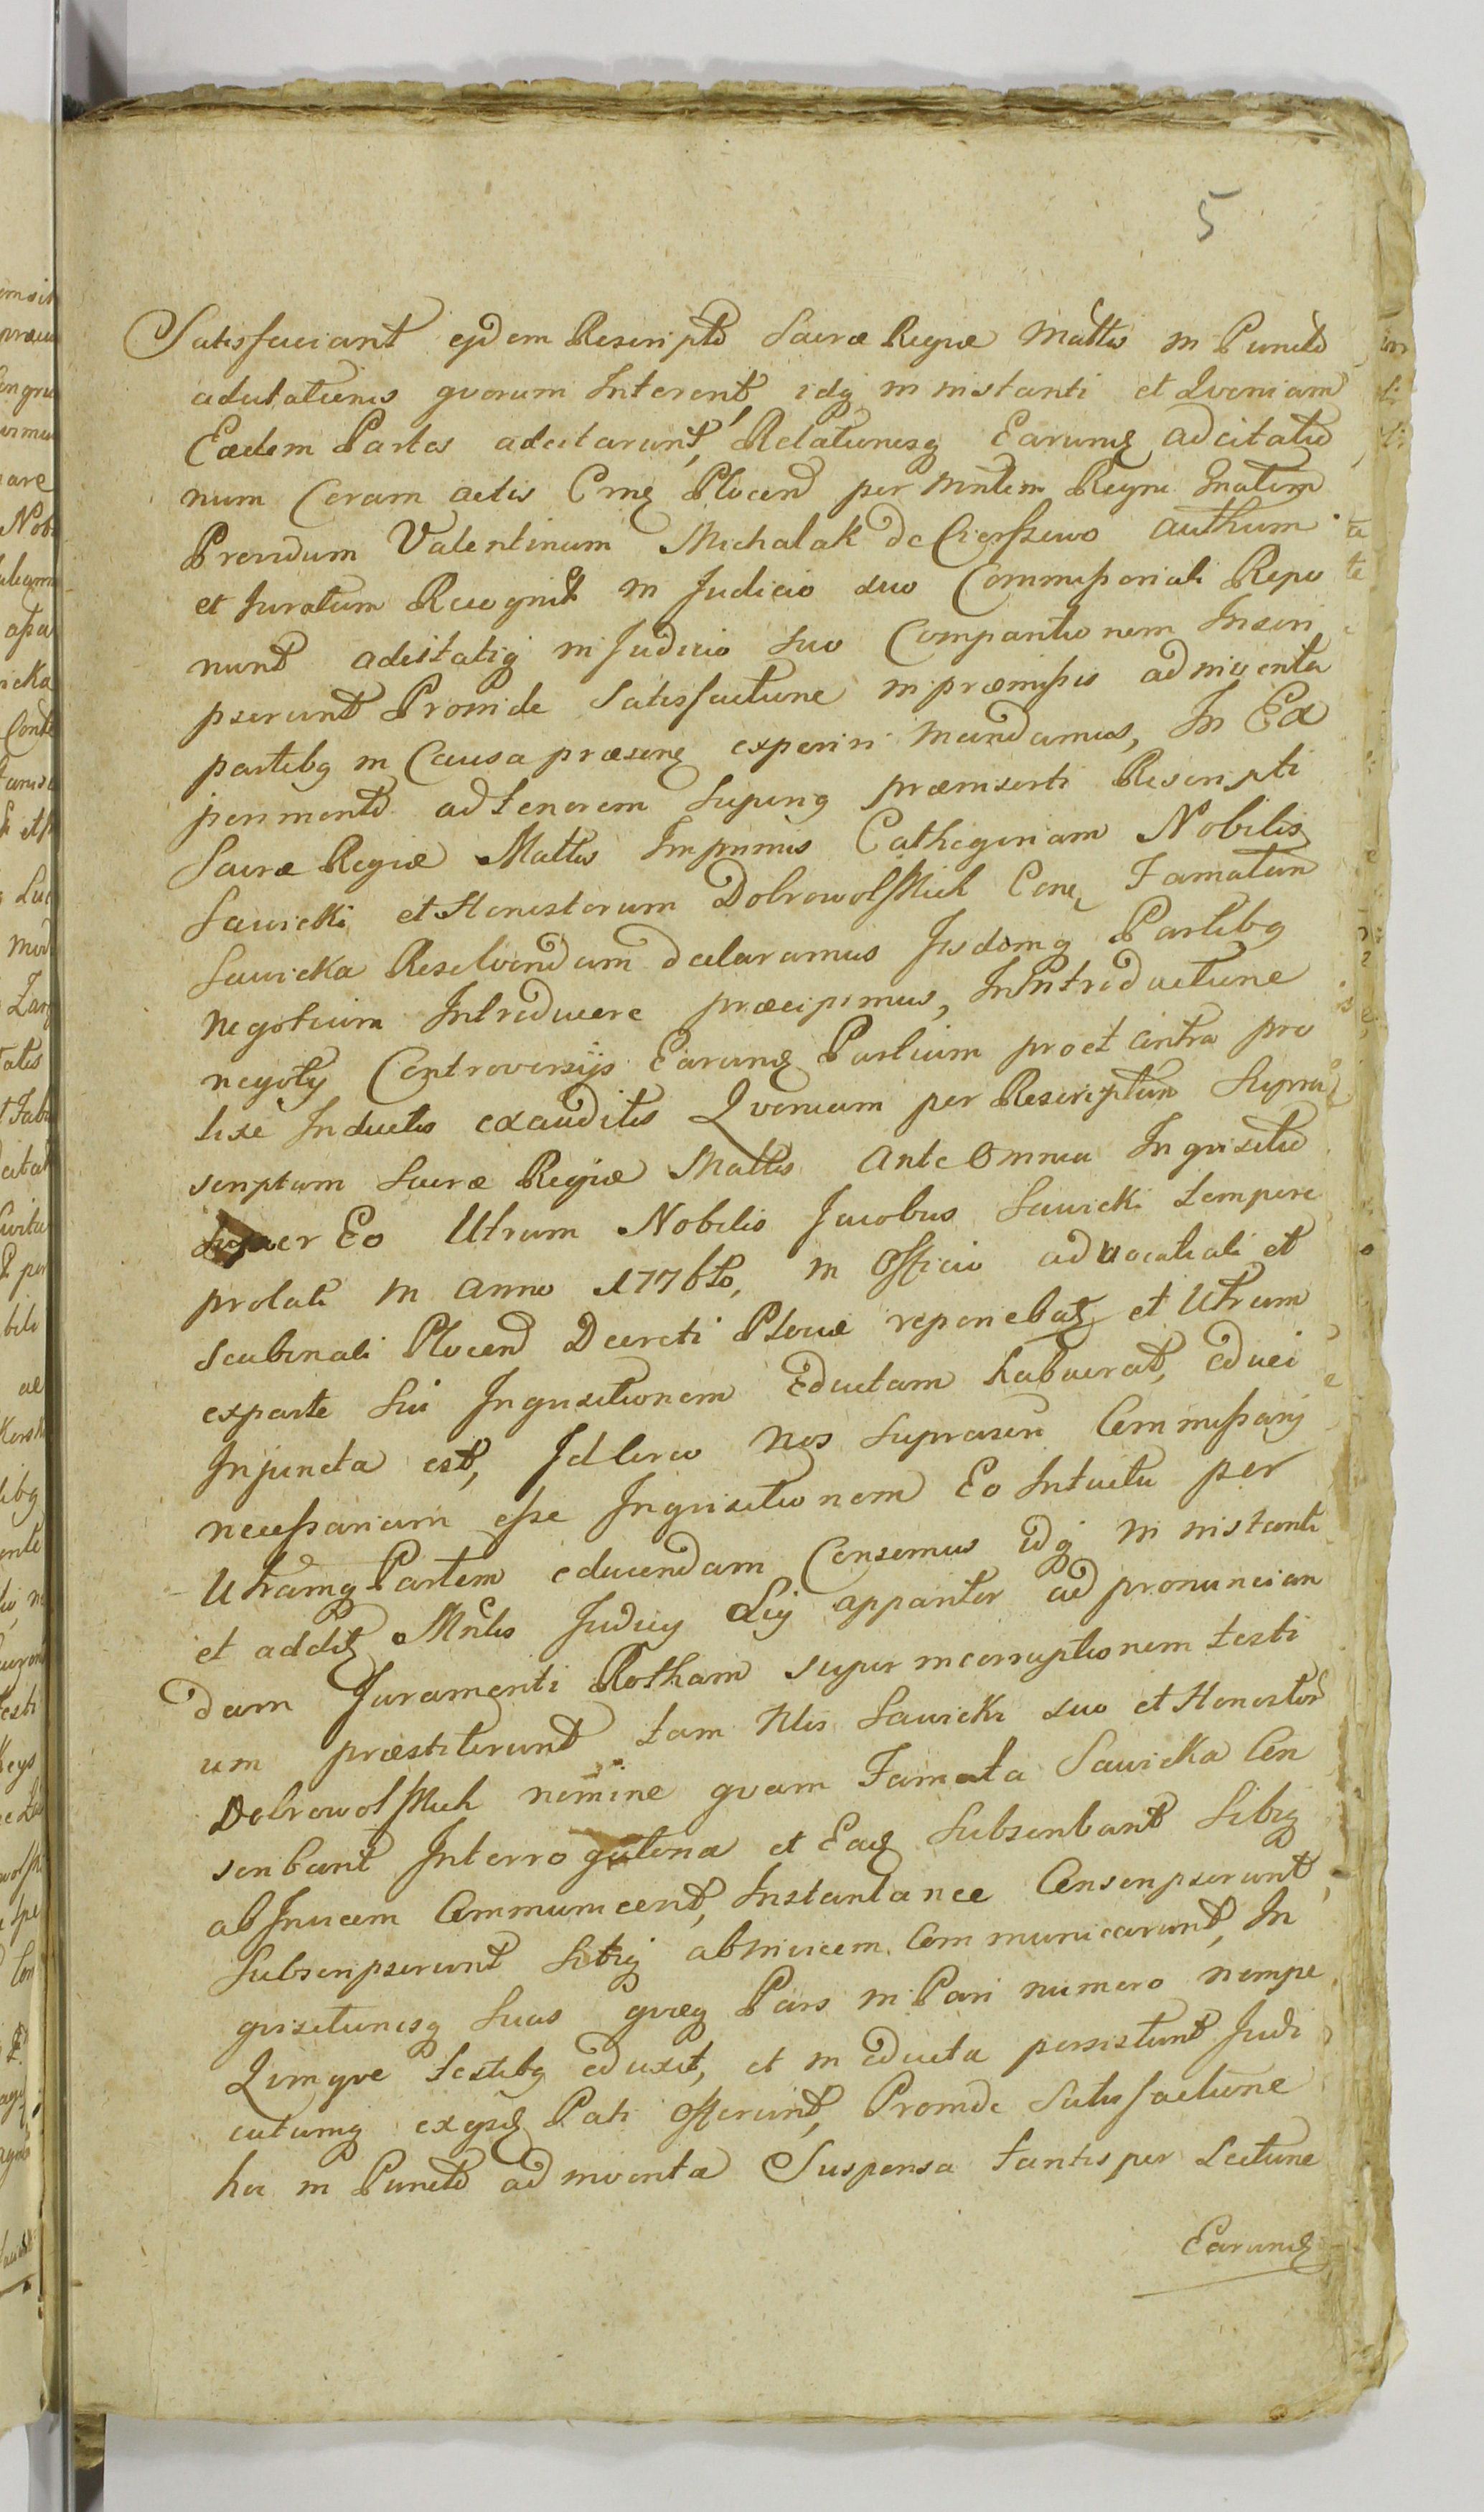 5
Satisfaciant ejdem Rescripto Sacræ Regiæ Mattis in Puncto
adcitationis quorum Interent, idq in instanti et Qvoniam
Eædem Partes adcitarunt, Relationesq Earund adcitatio
num Coram actis Cme Plocen per Mntem Regni Gnatem
Provdum Valentinum Michalak de Cierszewo authum
et Juratum Recognit in Judicio suo Commissoriali Repo
nunt adcitatiq in Judicio suo Compartionem Inscri
pserunt Proinde Satisfactione in præmissis adinventa
partibq in Causa præsen experiri mandamus, In Ex
perimento ad tenorem superiq præinserti Rescripti
Sacræ Regiæ Mattis Imprimis Cathegoriam Nobilis
Sawicki et Honestorum Dobrowolskich Cone Famatam
Sawicka Resolvendam declaramus Jisdemq Partibq
negotium Introducere præcipimus, In Introductione
negotij Controversijs Earund Partium pro et contra pro
lixe Inductis exauditis Qvoniam per Rescriptum Supra
scriptum Sacræ Regiæ Mattis Ante Omnia Inqvisitio
super Eo Utrum Nobilis Jacobus Sawicki tempore
prolati in anno 1776to, in Officio advocatiali et
Scabinali Plocen Decreti Plociæ reponebat et Utrum
ex parte sui Inqvisitionem Eductam habuerat, educi
Injuncta est, Idcirco Nos Suprascri Commissarij
necessariam esse Inqvisitionem Eo Intuitu per
Utramq Partem educendam Censemus idq in instanti
et addit Mnlis Judicij Sui apparitor ad pronuncian
dam Juramenti Rotham super incorruptionem testi
um præstiterunt tam Nlis Sawicki suo et Honestor
Dobrowolskich nomine qvam Famata Sawicka Con
scribant Interrogatoria et Ead Subscribant Sibiq
ab Invicem Communicent, Instantanee Conscripserunt,
Subscripserunt Sibiq ab invicem Communicarunt, In
qvisitionesq Suas qvæq Pars in Pari numero nempe
Qvinqve testibq eduxit, et in educta persistunt Judi
catumq ex ejsd Pati offerunt, Proinde Satisfactione
hoc in Puncto adinventa Suspensa tantisper Lectione
Earund